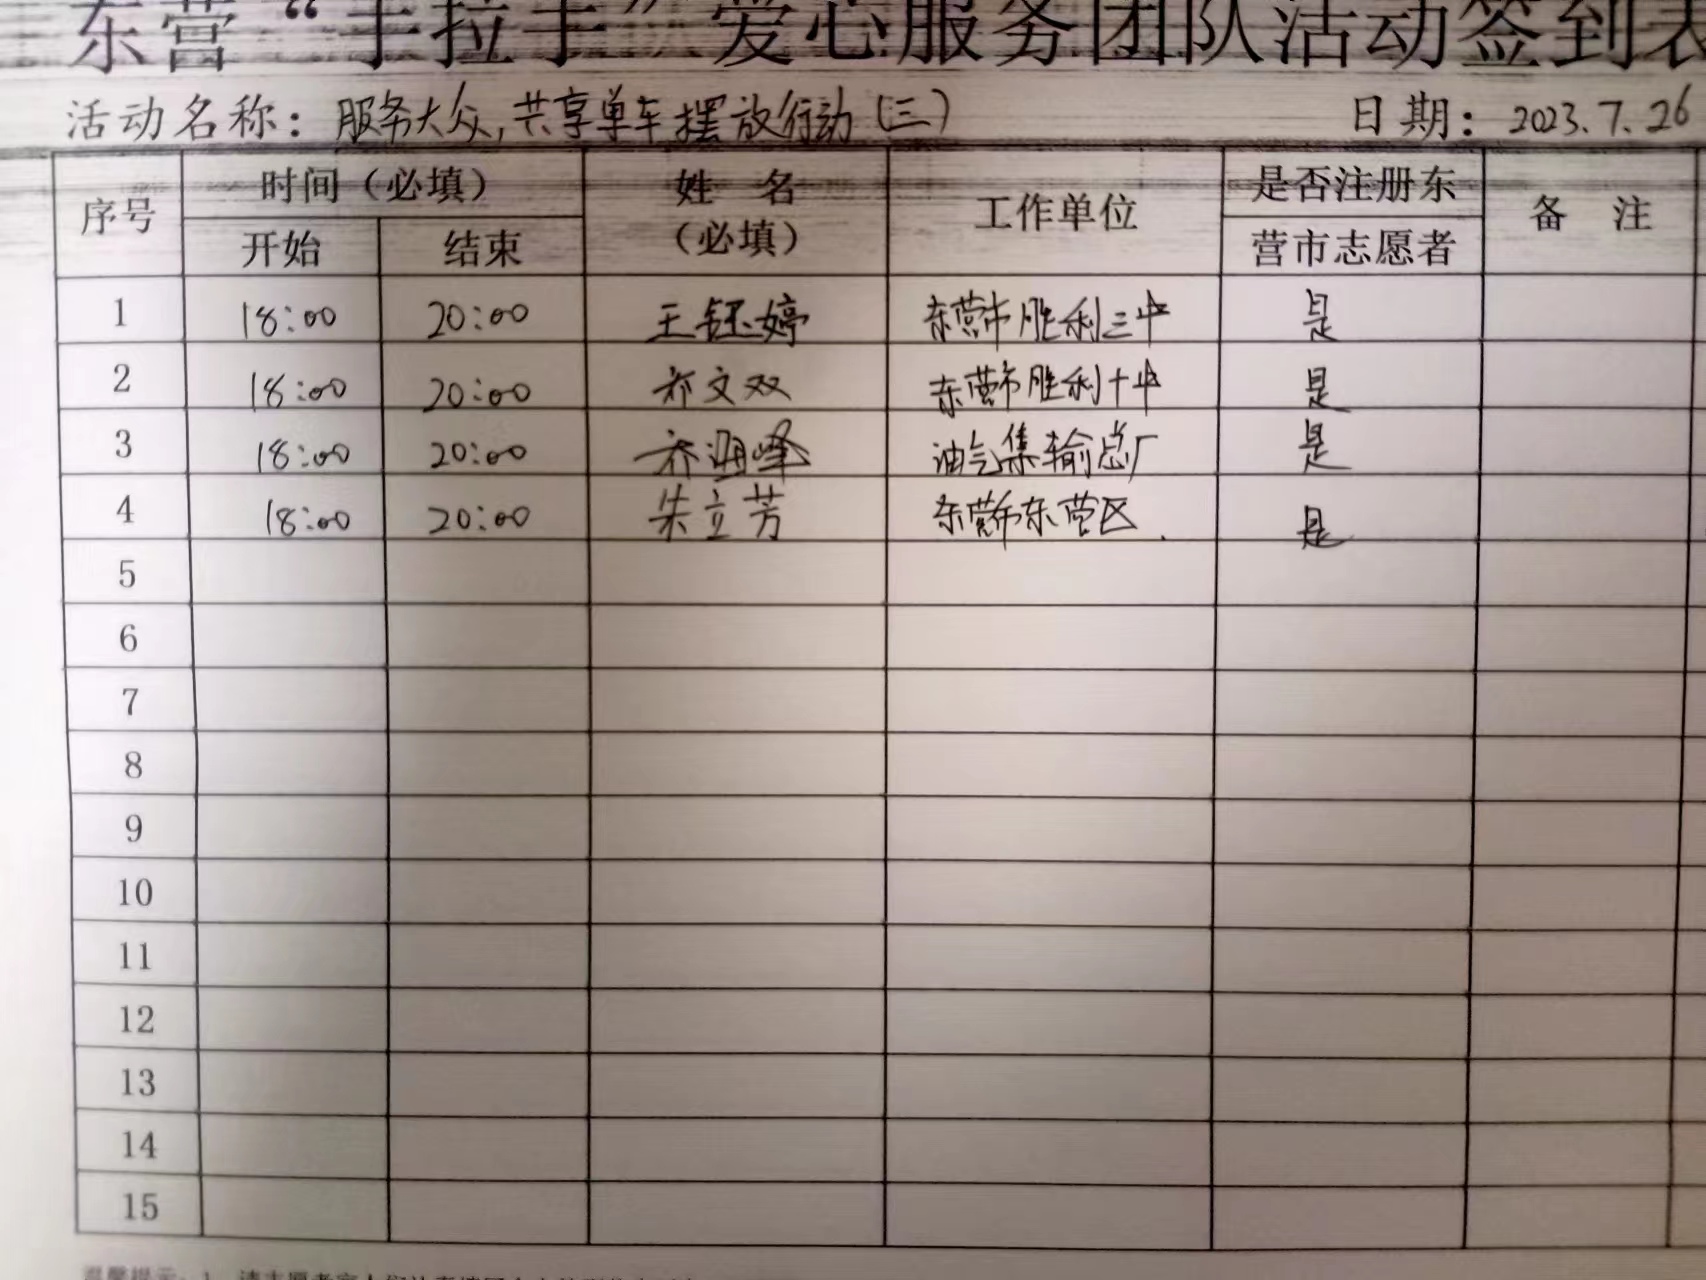 东营“手拉手”爱心服务团队活动签到表
活动名称：服务大众，共享单车摆放行动（三） 日期：2023.7.26
序号 时间（必填） 姓 名（必填） 工作单位 是否注册东营市志愿者 备 注
开始 结束
1 18:00 20:00 王钰婷 东营市胜利三中 是
2 18:00 20:00 乔文双 东营市胜利十中 是
3 18:00 20:00 乔 峰 油气集输总厂 是
4 18:00 20:00 朱立芳 东营市东营区 是
5
6
7
8
9
10
11
12
13
14
15